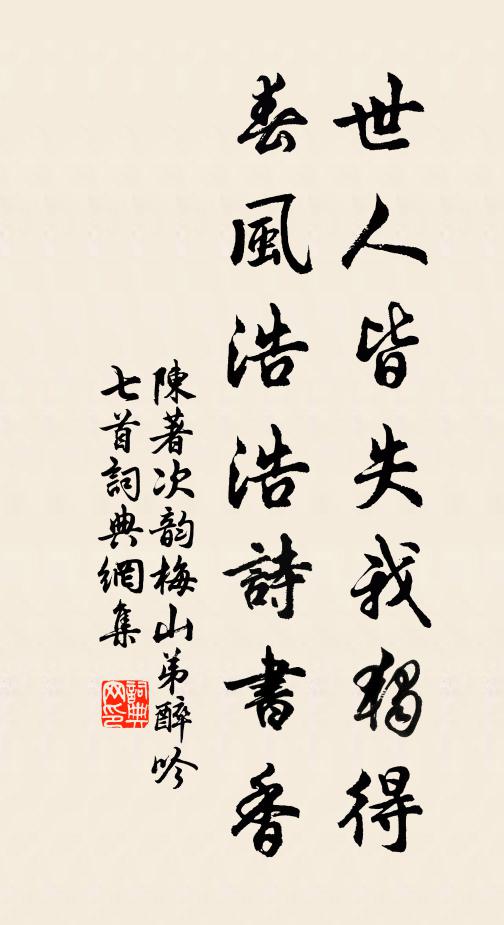 世人皆失我獨得
春風浩浩詩書香
陳著次韵梅山弟醉吟
七首詞典網集
詞典网印